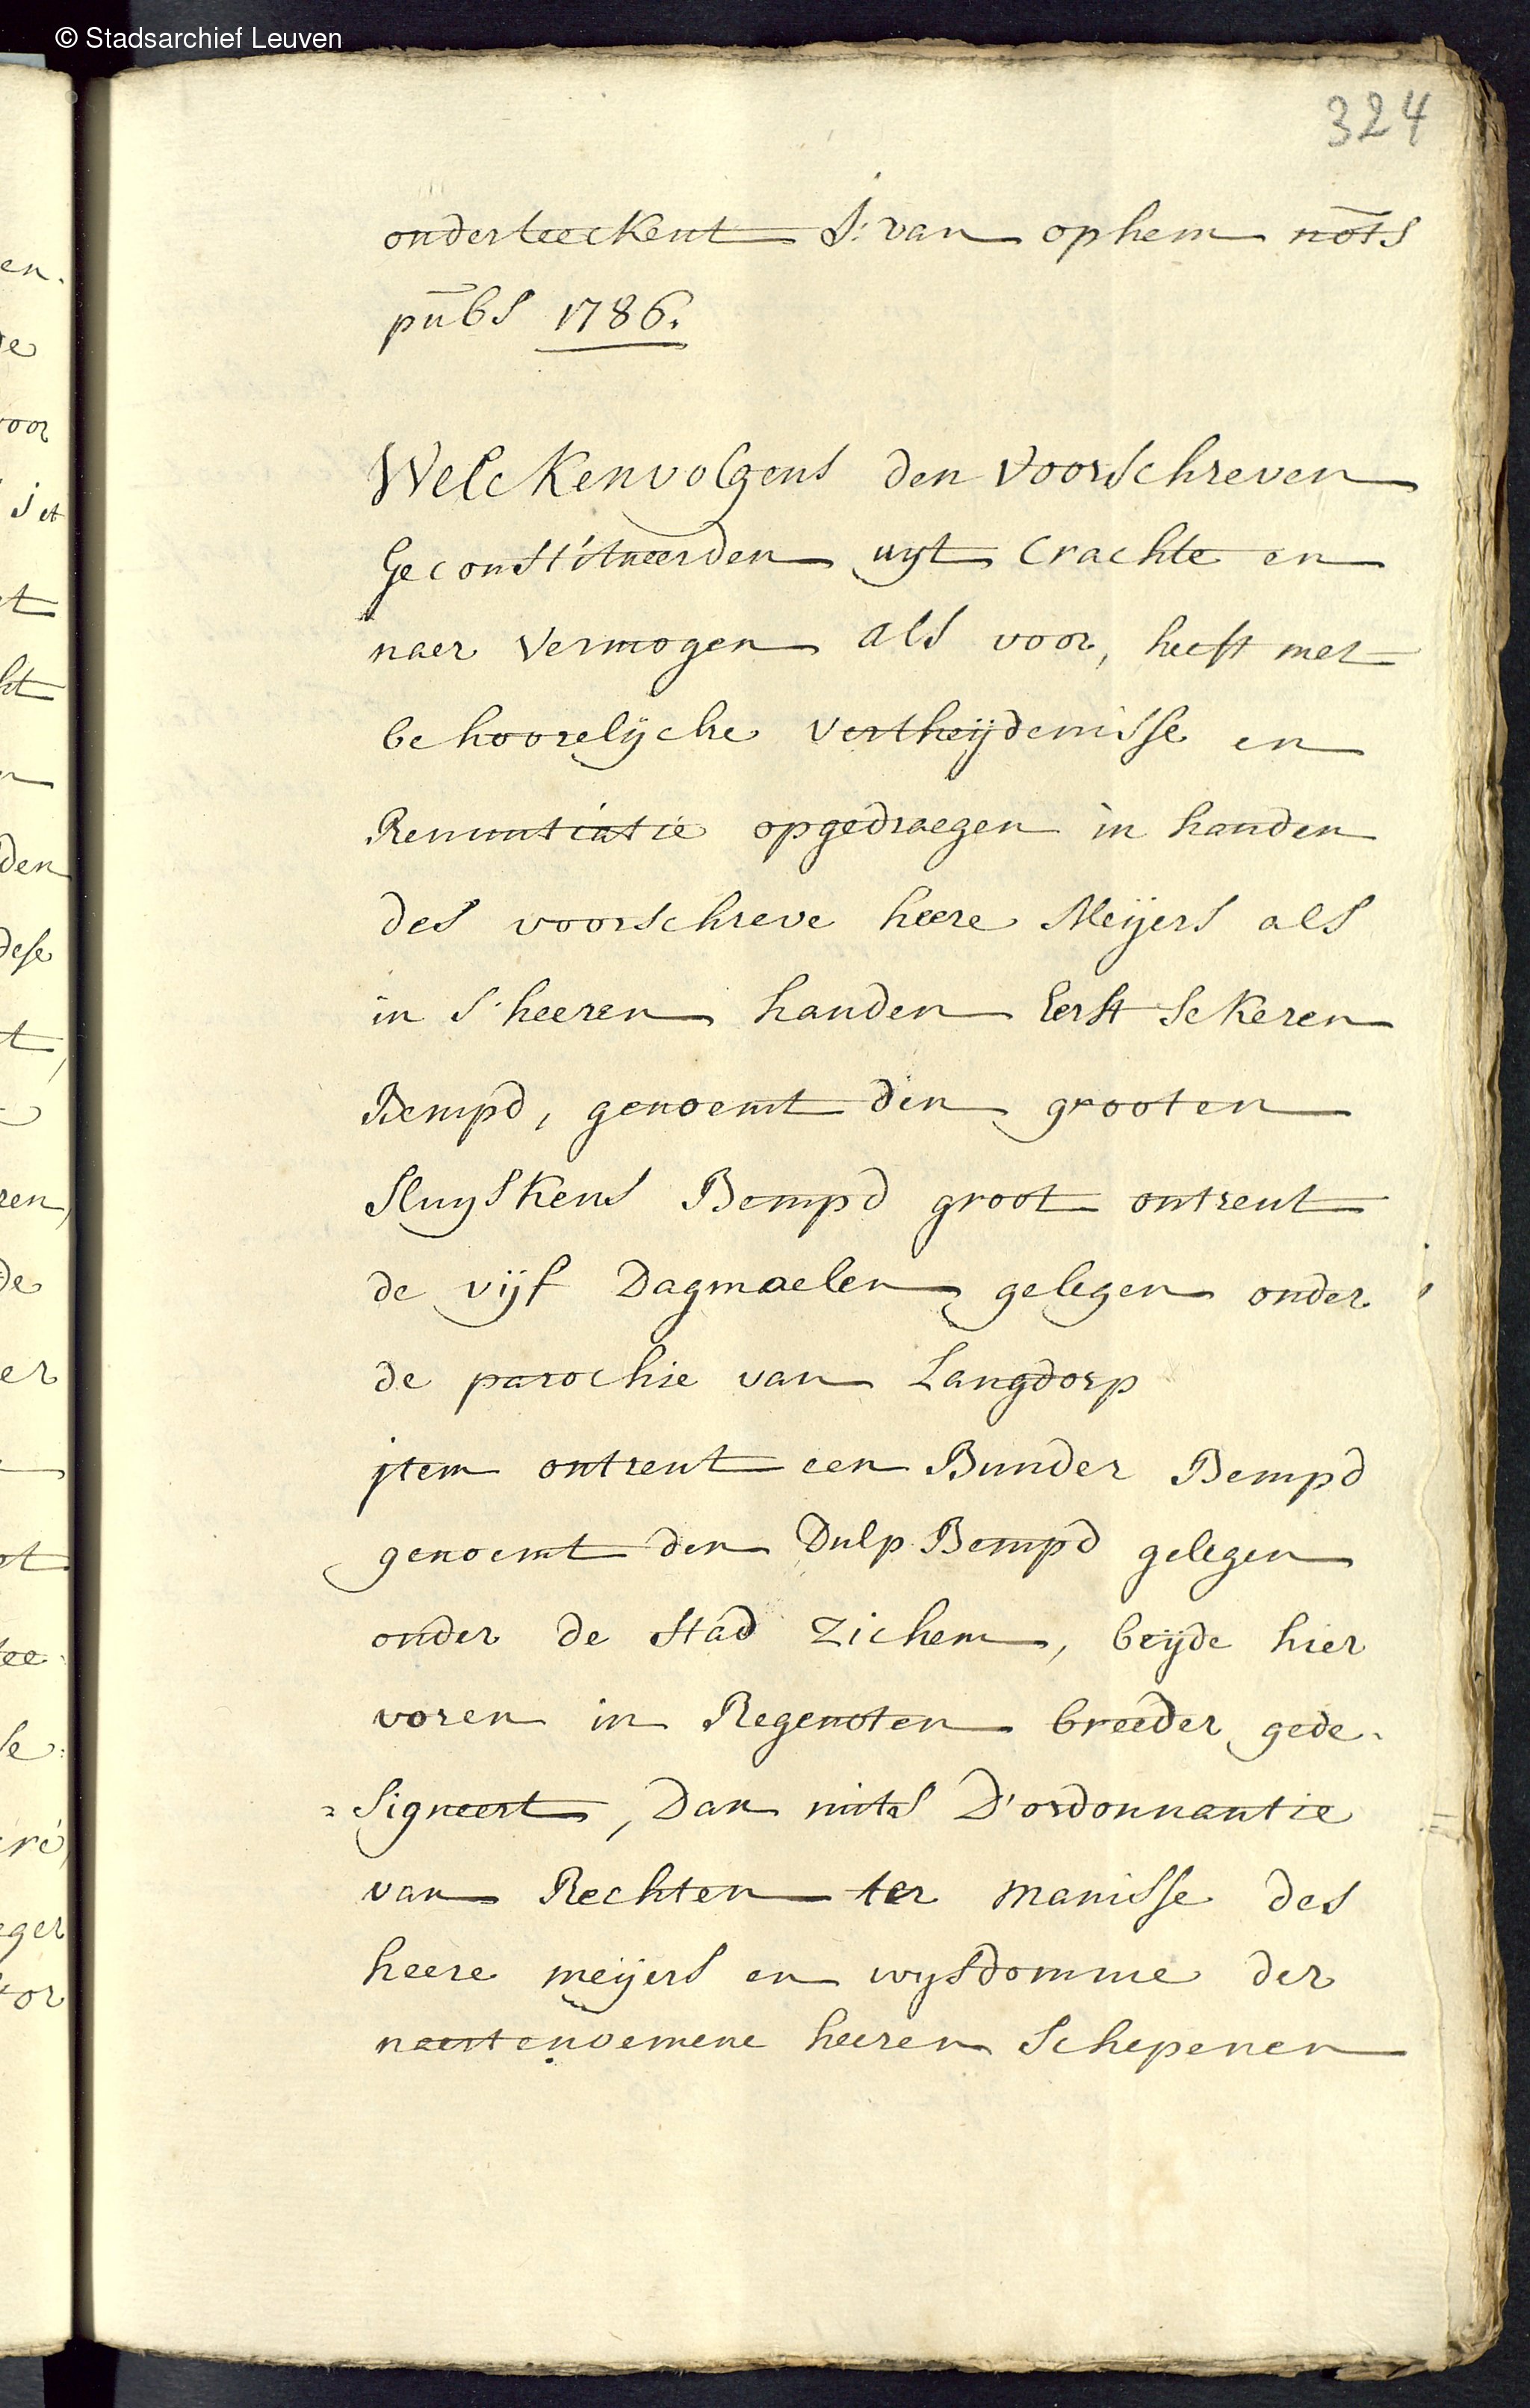 © Stadsarchief Leuven
324
onderteeckent J: van ophem nots
pubs 1786.
Welckenvolgens den voorschreven
Geconstitueerden uyt Crachte en
naer vermogen als voor, heeft met
behoorelycke vertheijdenisse en
Renuntiatie opgedraegen in handen
des voorschreve heere Meijers als
in s'heeren handen Eerst sekeren
Bempd, genoemt den grooten
sluyskens Bempd groot ontrent
de vijf Dagmaelen gelegen onder
de parochie van Langdorp
jtem ontrent een Bunder Bempd
genoemt den Dulp Bempd gelegen
onder de stad Zichem, beyde hier
voren in Regenoten breeder gede-
=signeert, Dan mits D'ordonnantie
van Rechten ter manisse des
heere meijers en wysdomme der
naertenoemene heeren schepenen
en.
de
voor
t
ht
n
den
dese
t,
ren,
de
er
ot
tee
se
ré,
eger
tor